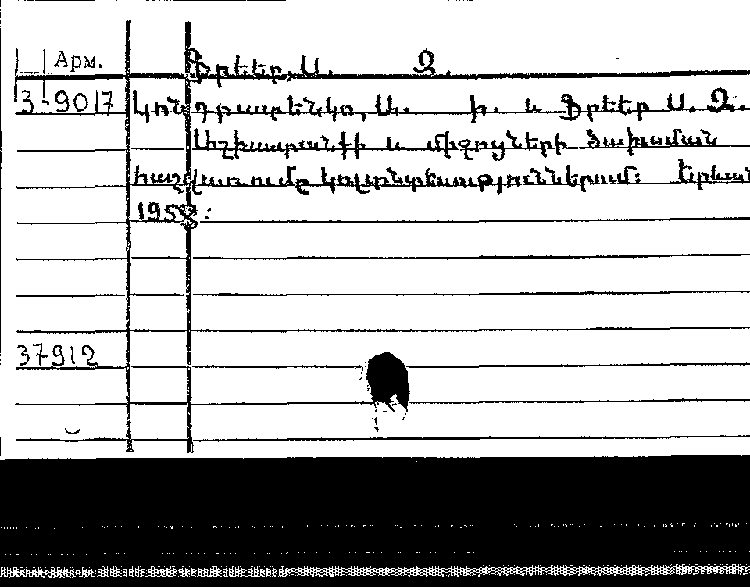 Арм.
Ֆրեեր, Ա. Զ.
3-9017 Կոնդրատենկո, Ա. Ի. և Ֆրեեր Ա. Զ.
Աշխատանքի և միջոցների ծախսման
հաշվառումը կոլտնտեսություններում: Երևան
1958:
37912